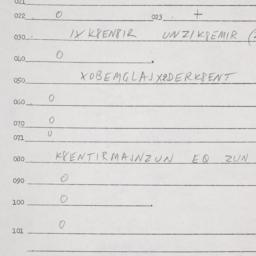 021
022 0 023 +
030 IX KPENPIR UNZIKPEMIR (
040 0
050 XOBEMGLAJXODERKPENT
060 0
070 0
071 0
080 KPENTIRMAJNZUN EQ ZUN
090 0
100 0
101 0